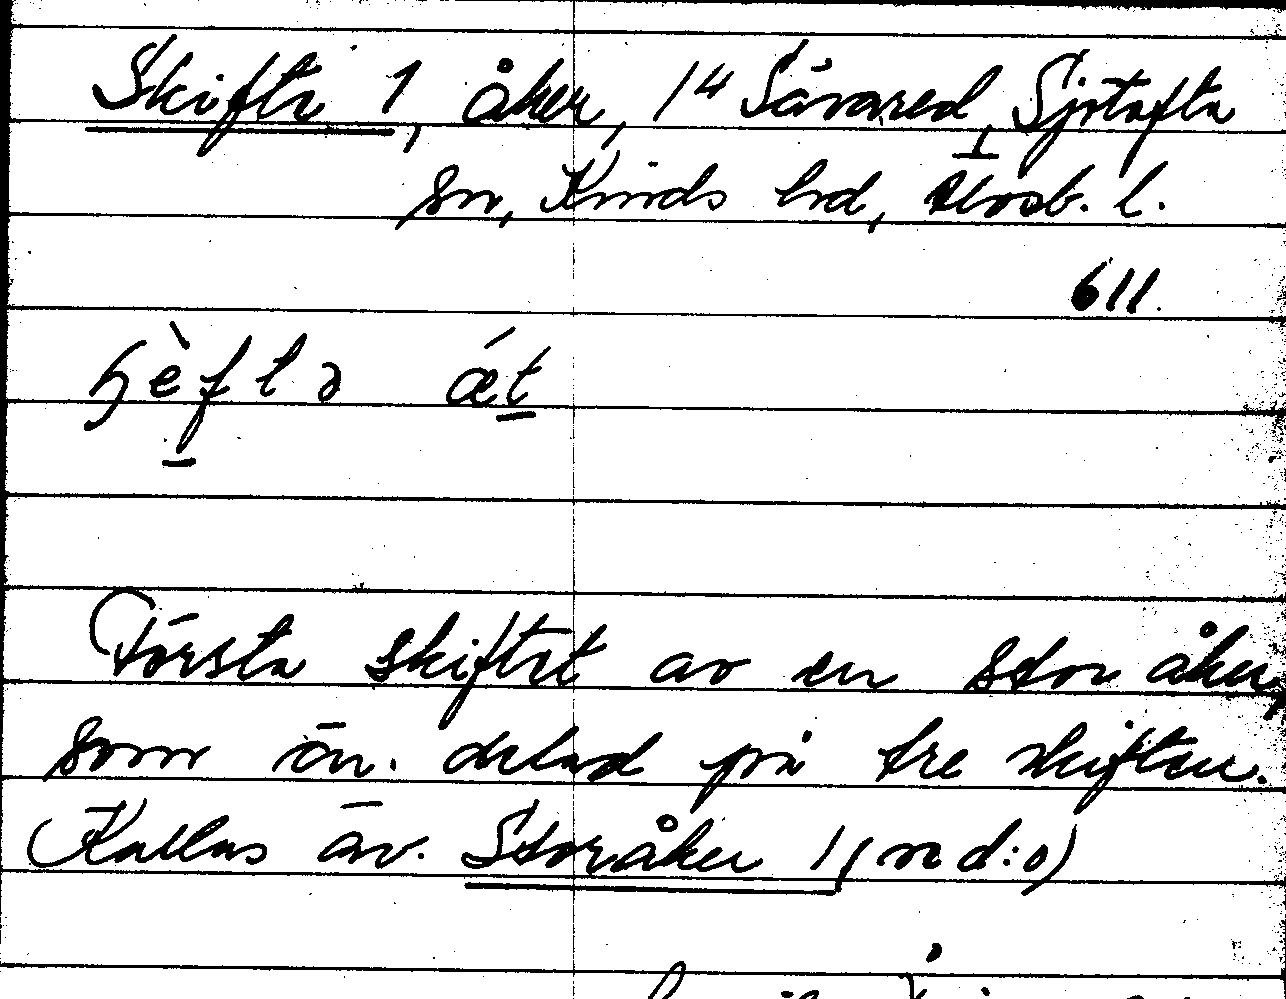 Skifta 1, åker, 1⁴ Såvared, Sjötofta
sn, Kinds hd, Älvsb. l.
611.
Första skiftet av en stor åker,
som är. delad på tre skiften.
(Kallas äv. Storåker 1, (m d:o)